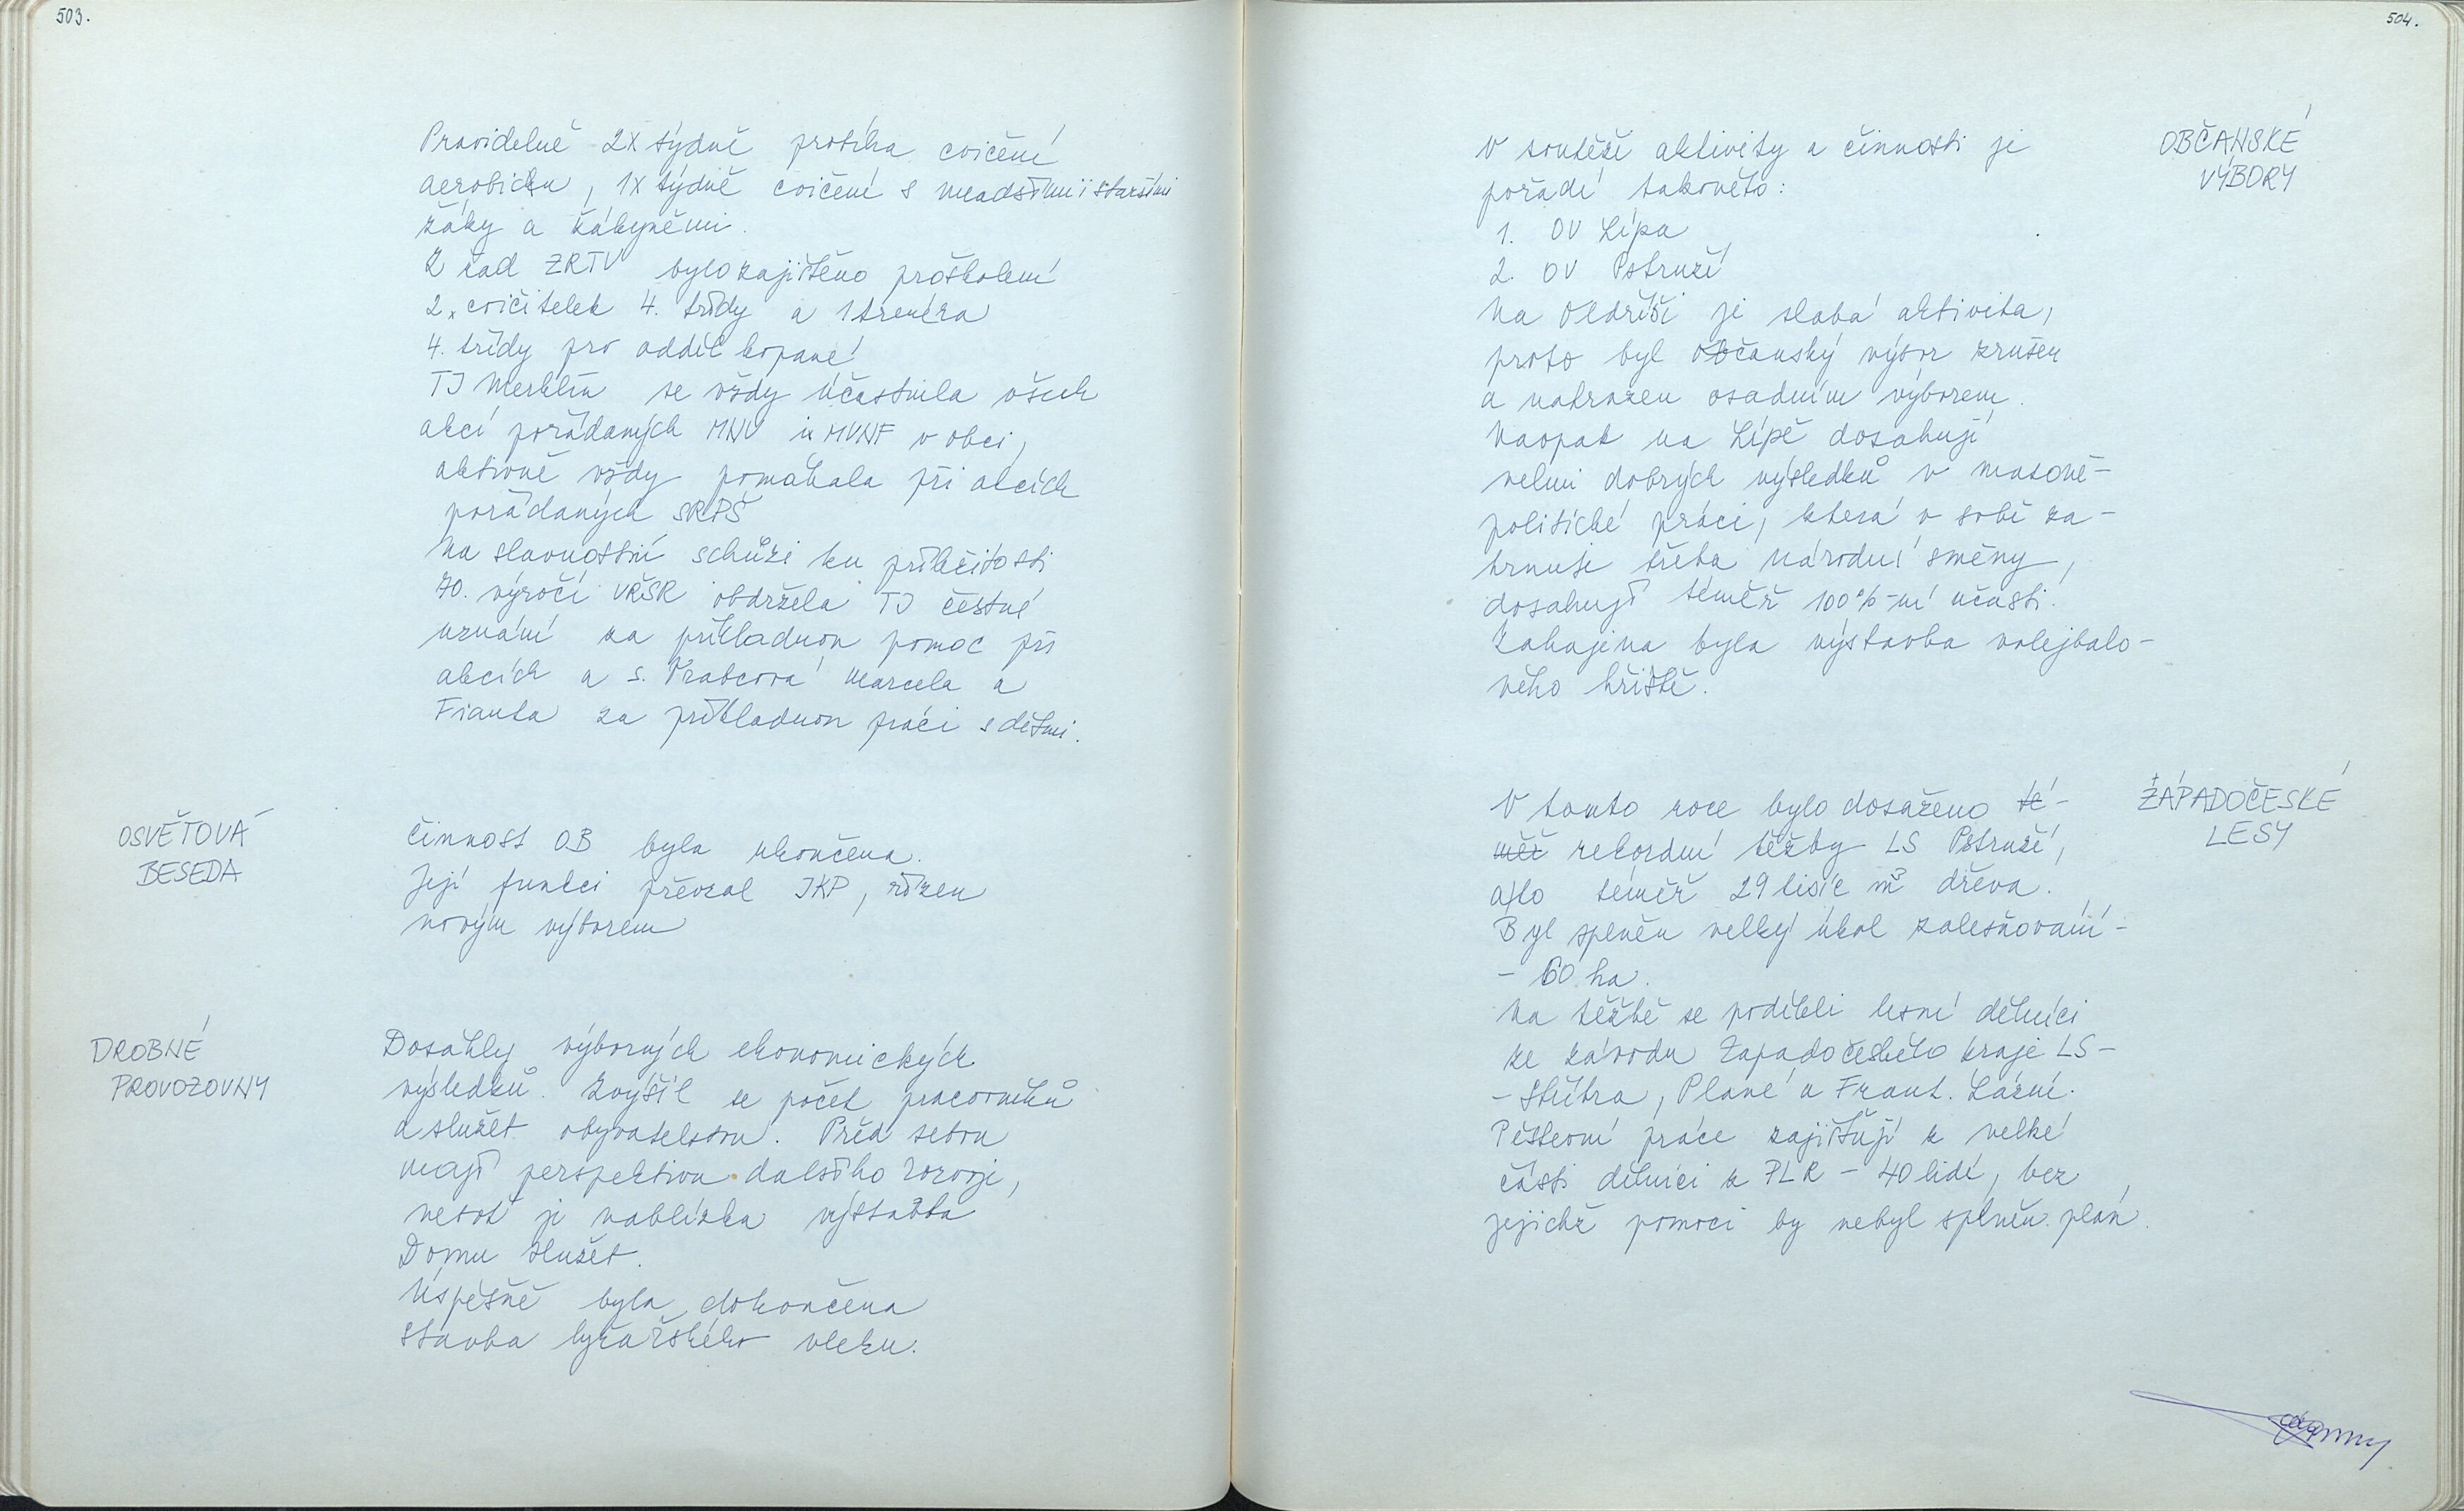 503.
Pravidelně 2x týdně probíhá cvičení
aerobicku, 1x týdně cvičení s mladšími i staršími
žáky a žákyněmi.
Z řad ZRTV bylo zajištěno proškolení
2. cvičitelek 4. třídy a 1 trenéra
4. třídy pro oddíl kopané.
TJ Merklín se vždy účastnila všech
akcí pořádaných MNV i MVNF v obci,
aktivně vždy pomáhala při akcích
pořádaných SRPŠ
Na slavnostní schůzi ku příležitosti
70. výročí VŘSR obdržela TJ čestné
uznání za příkladnou pomoc při
akcích a s. Vrabcová Marcela a
Fianta za příkladnou práci s dětmi.
OSVĚTOVÁ
BESEDA
činnost OB byla ukončena.
Její funkci převzal JKP, řízen
novým výborem
DROBNÉ
PROVOZOVNY
Dosáhly výborných ekonomických
výsledků. Zvýšil se počet pracovníků
a služeb obyvatelstvu. Před sebou
mají perspektivu dalšího rozvoje,
neboť je nablízku výstavba
Domu služeb.
Úspěšně byla dokončena
stavba lyžařského vleku.
504.
OBČANSKÉ
VÝBORY
V soutěži aktivity a činnosti je
pořadí takovéto:
1. OV Lípa
2. OV Pstruží
Na Oldříši je slabá aktivita,
proto byl občanský výbor zrušen
a nahrazen osadním výborem.
Naopak na Lípě dosahují
velmi dobrých výsledků v masově-
politické práci, která v sobě za-
hrnuje třeba národní směny,
dosahují téměř 100%-ní účasti.
Zahájena byla výstavba volejbalo-
vého hřiště.
ZÁPADOČESKÉ
LESY
V tomto roce bylo dosaženo té-
měř rekordní těžby LS Pstruží,
a to téměř 29 tisíc m³ dřeva.
Byl splněn velký úkol zalesňování -
- 60 ha.
Na těžbě se podíleli lesní dělníci
ze závodu Západočeského kraje LS -
- Stříbra, Plané a Frant. Lázní.
Pěstební práce zajišťují z velké
části dělníci z PLR - 40 lidí, bez
jejichž pomoci by nebyl splněn plán.